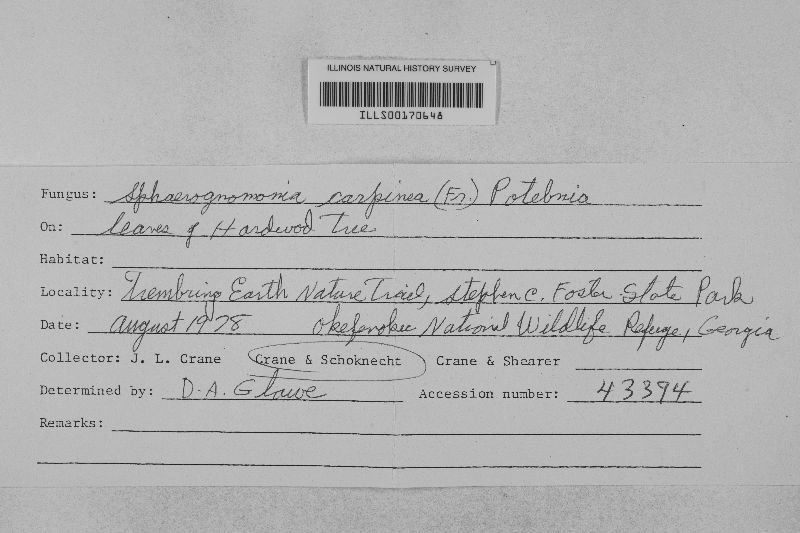 ILLINOIS NATURAL HISTORY SURVEY
ILLS00170648
Fungus: Sphaerognomonia carpinea (Fr.) Potebnia
On: leaves of Hardwood Tree
Habitat:
Locality: Trembring Earth Nature Trail, Stephen C. Foster State Park
Date: August 1978 Okefenokee National Wildlife Refuge, Georgia
Collector: J. L. Crane Crane & Schoknecht Crane & Shearer
Determined by: D. A. Glawe Accession number: 43394
Remarks: